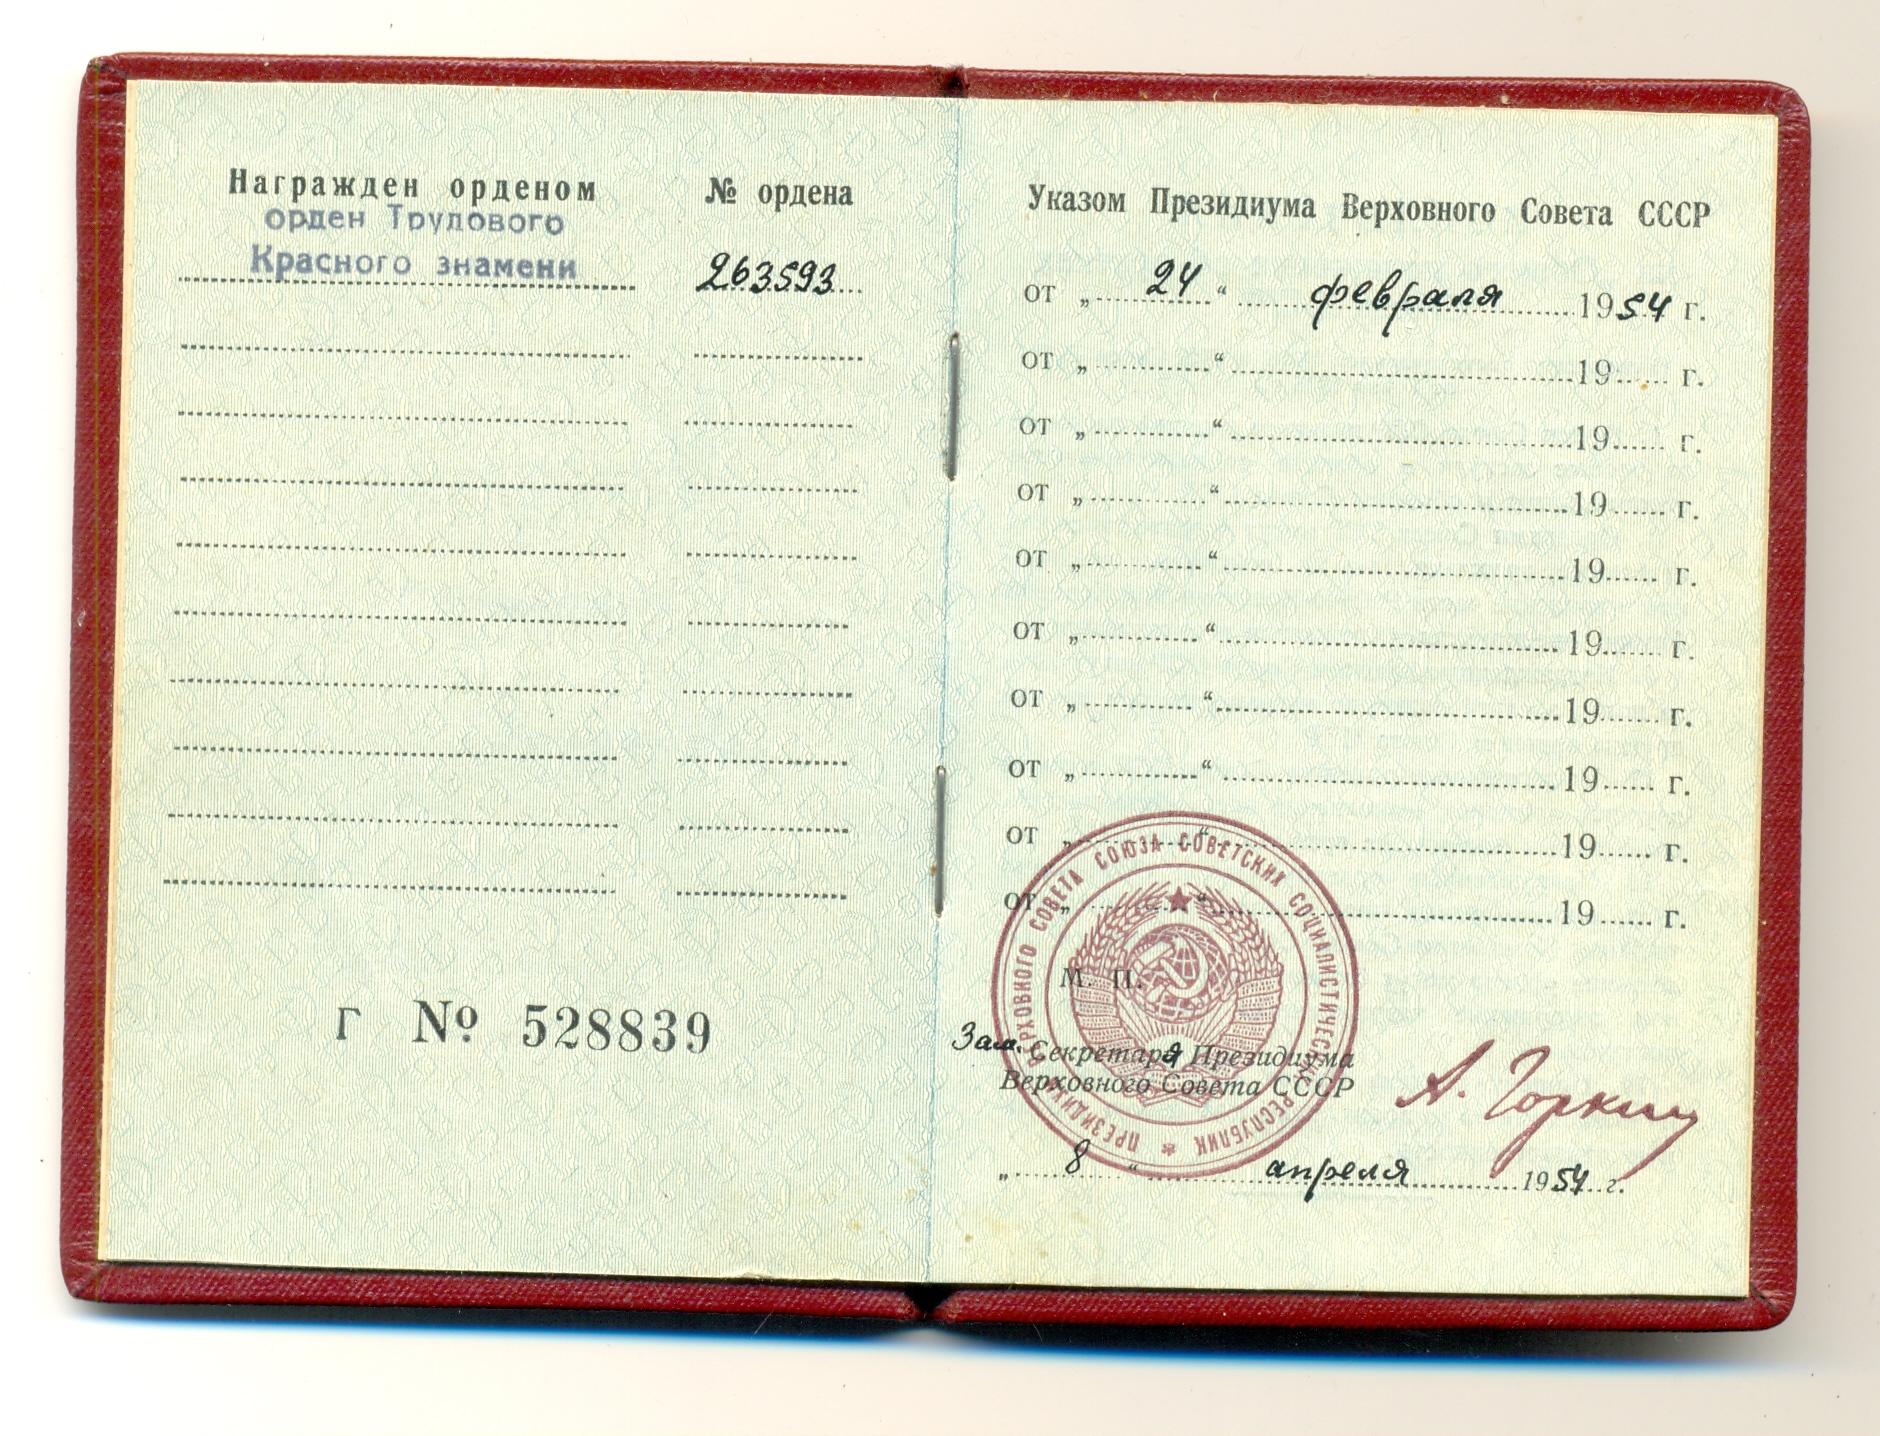 Награжден орденом
орден Трудового
Красного знамени
№ ордена
263593
Г № 528839
Указом Президиума Верховного Совета СССР
от „ 24 “ февраля 1954 г.
от „ “ 19 г.
от „ “ 19 г.
от „ “ 19 г.
от „ “ 19 г.
от „ “ 19 г.
от „ “ 19 г.
от „ “ 19 г.
от „ “ 19 г.
от „ “ 19 г.
М. П.
ПРЕЗИДИУМ ВЕРХОВНОГО СОВЕТА СОЮЗА СОВЕТСКИХ СОЦИАЛИСТИЧЕСКИХ РЕСПУБЛИК
Зам. Секретаря Президиума
Верховного Совета СССР
А. Горкин
„ 8 “ апреля 1954 г.